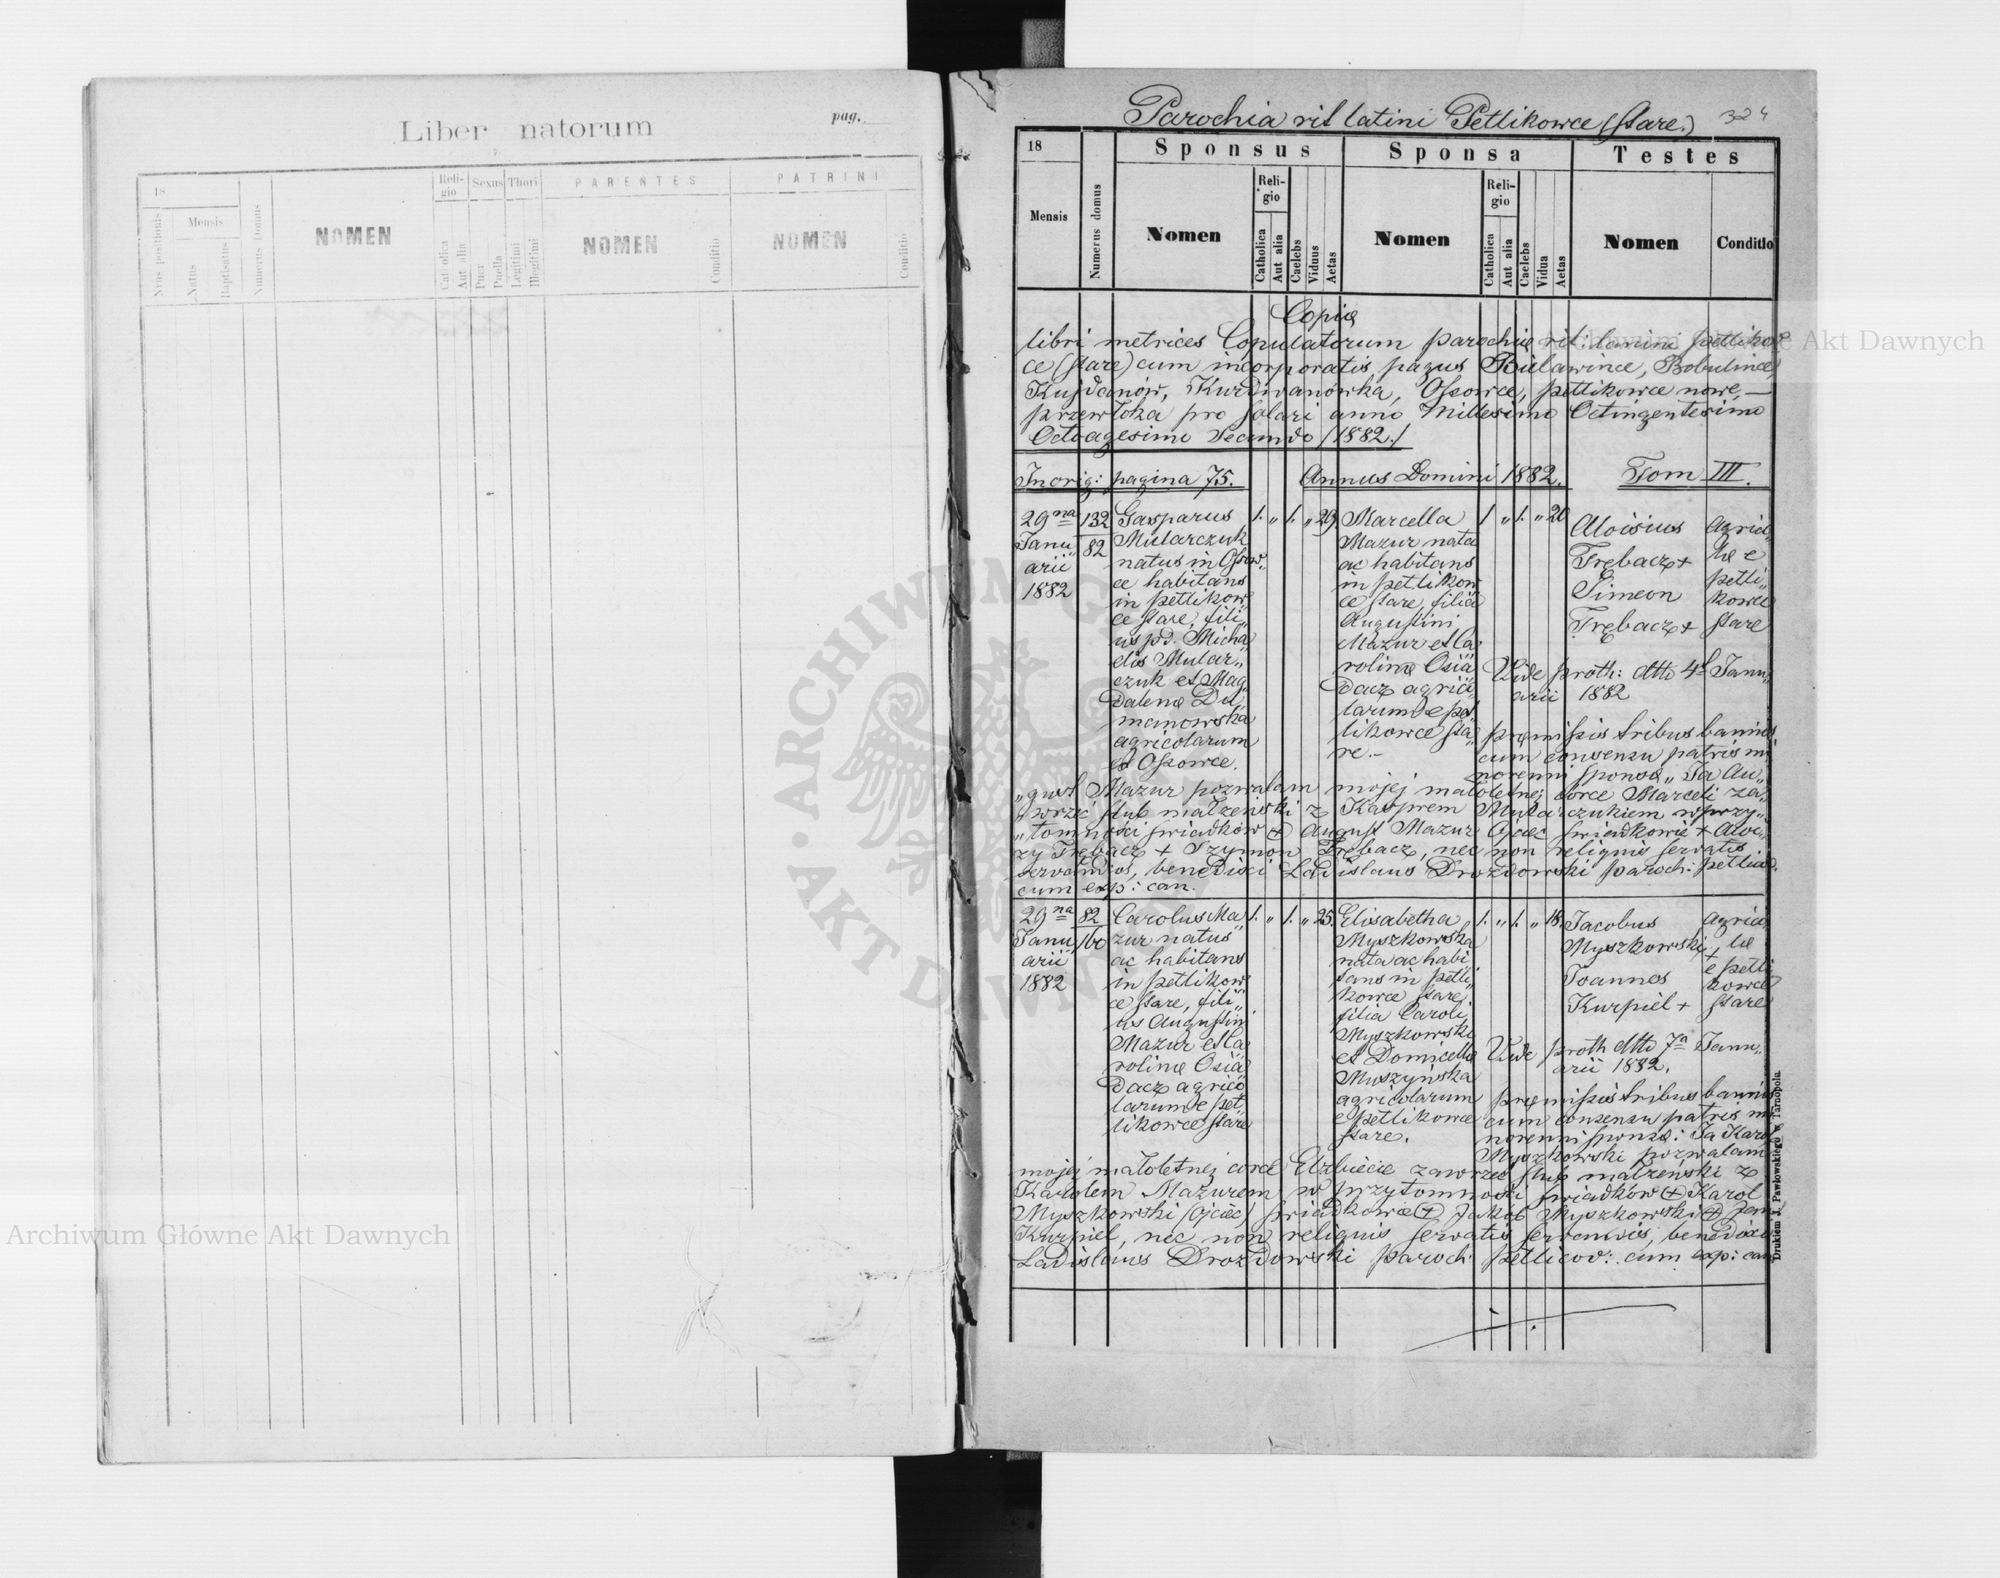 Liber natorum
pag.
18
Mensis
Natus
Baptisatus
NOMEN
Reli-
gio
Sexus
Thori
Aut alia
Puer
Puella
Legitimi
Illegitimi
PARENTES
NOMEN
Conditio
PATRINI
NOMEN
Conditio
Parochia rit latini Petlikowce (stare.)
324
18
Mensis
Numerus domus
Sponsus
Nomen
Reli-
gio
Catholica
Aut alia
Caelebs
Viduus
Aetas
Sponsa
Nomen
Reli-
gio
Catholica
Aut alia
Caelebs
Vidua
Aetas
Testes
Nomen
Conditio
Copia
libri metrices Copulatorum parochiæ rit: petliko
ce (stare) cum incorporatis pagus Bielawince, Bobulince
Kujdanów, Kurdwanówka, Ossowce, petlikowce nowe, —
przewłoka pro solari anno Millesimo Octingentesimo
Octoagesimo Secundo /1882./
In orig: pagina 75. Annus Domini 1882. Tom III.
29 na
Janu
arii
1882
132
82
Gasparus
Mularczuk
natus in Ossow„
ce habitans
in petlikow
ce stare, fili„
us pd. Micha
elis Mular„
czuk et Mag„
dalenæ
manowska
agricolarum
Ossowce.
1. „ 1. „ 29
Marcella
Mazur nata
ac habitans
in petlikow
ce stare, filia
Augustini
Mazur et Ca
rolinæ Osia
dacz agrico
larum e pet
likowce sta„
re.-
1 „ 1. „ 20
Aloisius
Trębacz +
Simeon
Trębacz +
agrico
læ e
petli„
kowce
stare
Vide proth: dtto 4 Janu„
arii 1882
præmissis tribus bannis
cum consensu patris mi
norenni sponsæ „Ja Au„
„gust Mazur pozwalam mojej małoletniej córce Marceli za„
wrzeć ślub małżeński z Kasprem Mularczukiem w przy„
„tomności świadków + August Mazur Ojciec świadkowie + Aloi„
zy Trębacz + Szymon Trębacz, nec non reliquis servatis
servandis, benedixi Ladislaus Drozdowski paroch: petlicov.
cum exp: can.
29 na
Janu
arii
1882
82
160
Carolus Ma
zur natus
ac habitans
in petlikow
ce stare, fili„
us Augustin
Mazur et Ca
rolinæ Osia
dacz agrico
larum e pet„
likowce stare
1. „ 1. „ 25.
Elisabetha
Myszkowska
nata ac habi
tans in petli
kowce stare.
filia Caroli
Myszkowski
et Domicella
Muszyńska
agricolarum
e petlikowce
stare.
1. „ 1. „ 18.
Jacobus
Myszkowski +
Joannes
Kurpiel +
agrico
læ
e petli
kowce
stare
Vide proth dtto 7a Janu„
arii 1882.
præmissis tribus bannis
cum consensu patris mi
norenni sponsæ: Ja Karol
Myszkowski pozwalam
mojej małoletniej córce Elżbiecie zawrzeć ślub małżeński z
Karolem Mazurem w przytomności świadków + Karol
Myszkowski (Ojciec) świadkowie + Jakób Myszkowski + Jan
Kurpiel, nec non reliquis servatis servandis, benedixi
Ladislaus Drozdowski paroch petlicov: cum exp: can
Drukiem J. Pawłowskiego w Tarnopolu.
Archiwum Główne Akt Dawnych
Akt Dawnych